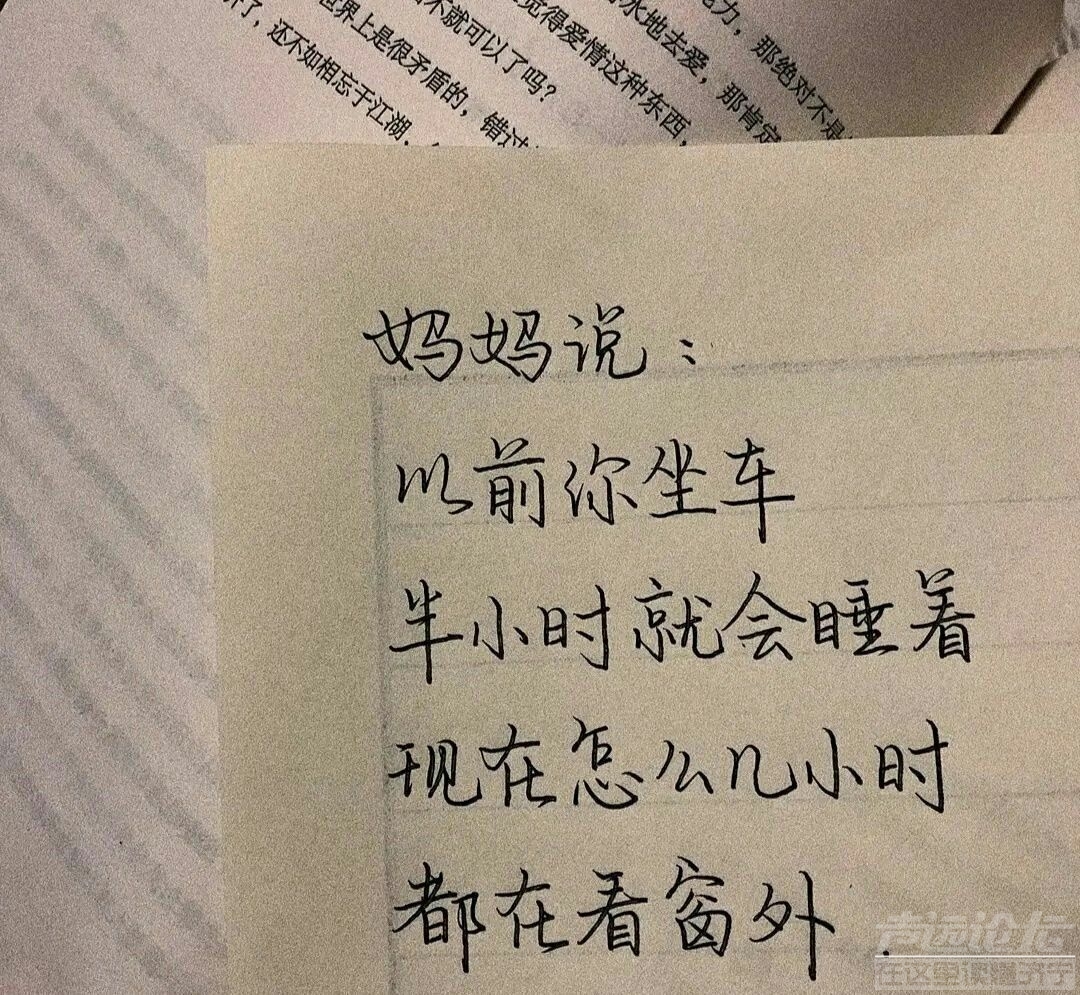 力，那绝对不是
水地去爱，那肯定
觉得爱情这种东西，
不就可以了吗？
世界上是很矛盾的，错过
了，还不如相忘于江湖，
妈妈说：
以前你坐车
半小时就会睡着
现在怎么几小时
都在看窗外.
声远论坛
在这里读懂济宁